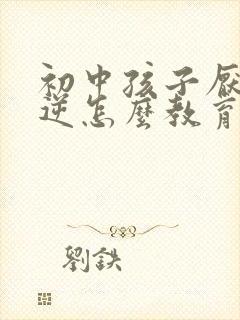 初中孩子厌
逆怎麼教育
劉鉄